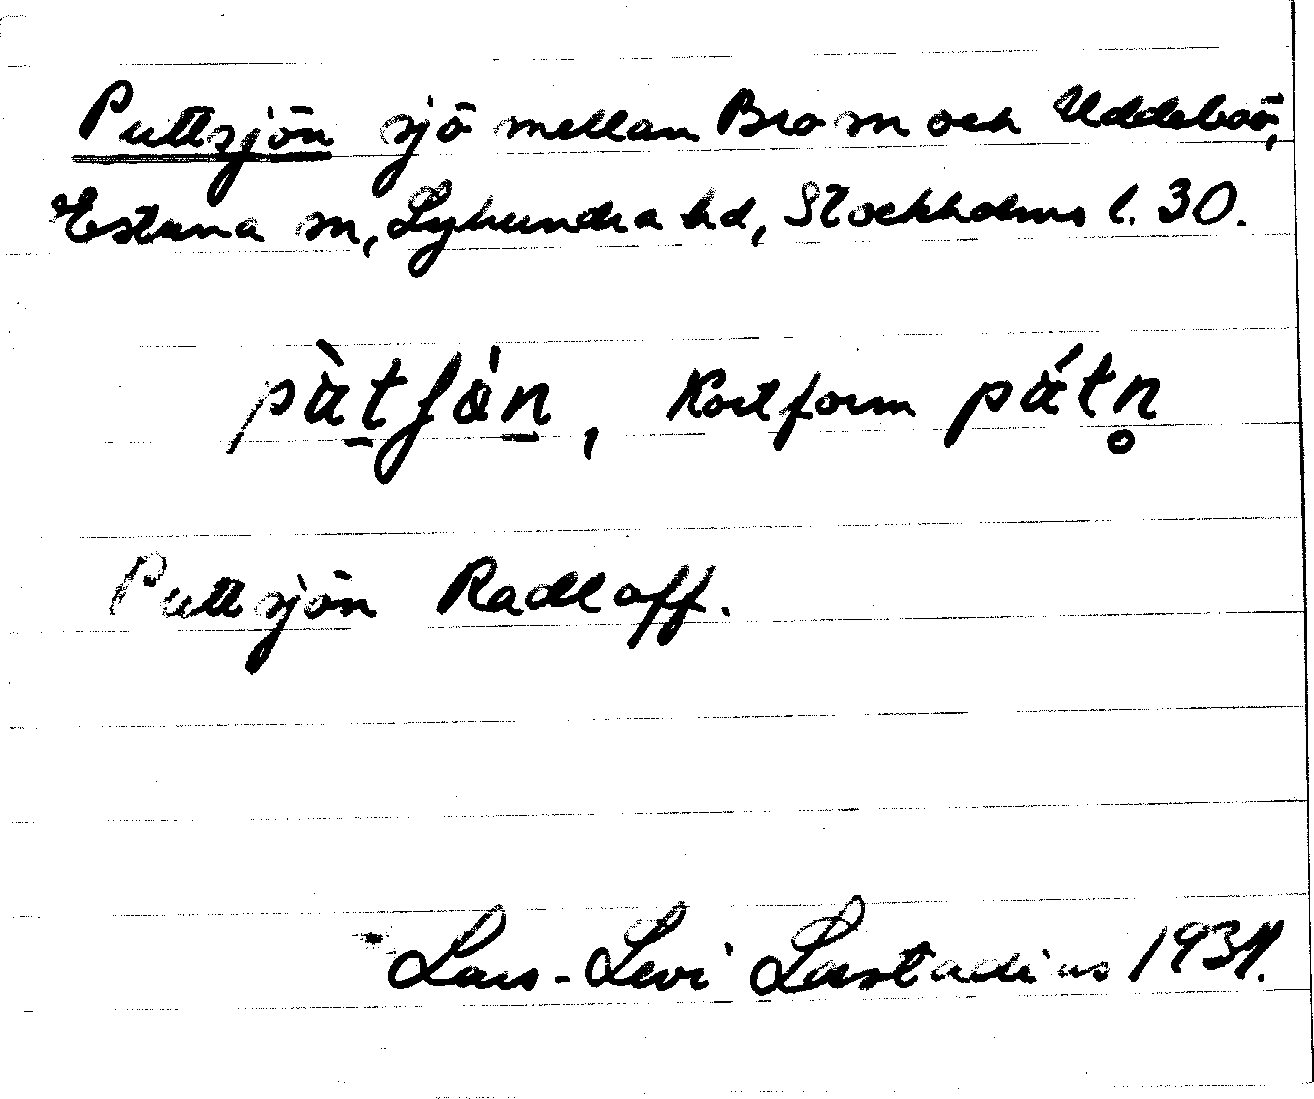 Puttsjön sjö mellan Brosm och Uddeboö,
Estuna sn, Lyhundra hd, Stockholms l. 30.
pàtʃàn, Kortform pátn̥
Puttsjön Radloff.
Lars-Levi Læstadius 1931.